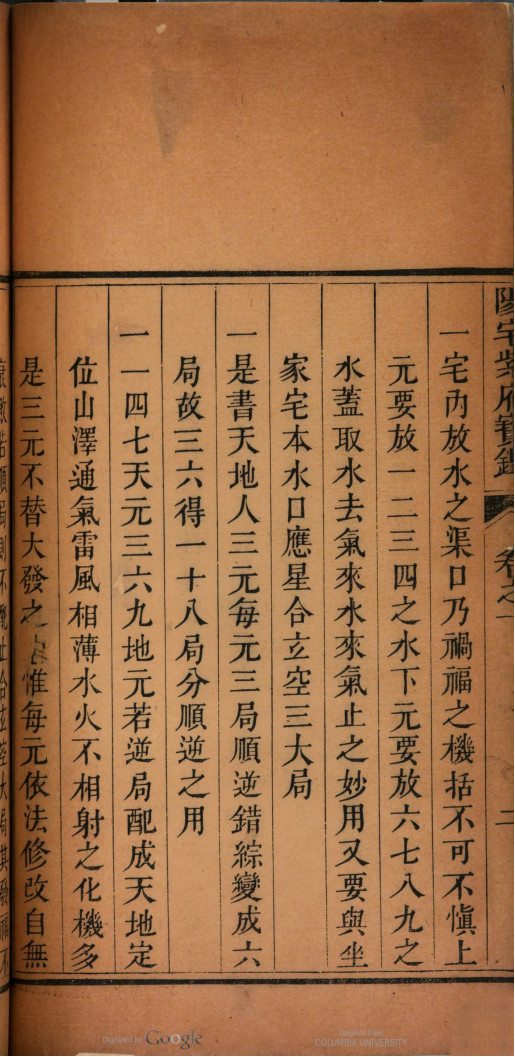 陽宅紫府寶鑑 卷之一 二
一宅內放水之渠口乃禍福之機括不可不慎上
元要放一二三四之水下元要放六七八九之
水蓋取水去氣來水來氣止之妙用又要與坐
家宅本水口應星合玄空三大局
一是書天地人三元每元三局順逆錯綜變成六
局故三六得一十八局分順逆之用
一一四七天元三六九地元若逆局配成天地定
位山澤通氣雷風相薄水火不相射之化機多
是三元不替大發之 惟每元依法修改自無
Digitized by Google
Original from
COLUMBIA UNIVERSITY